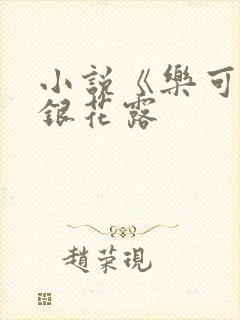 小説《樂可
銀花露
趙荣現